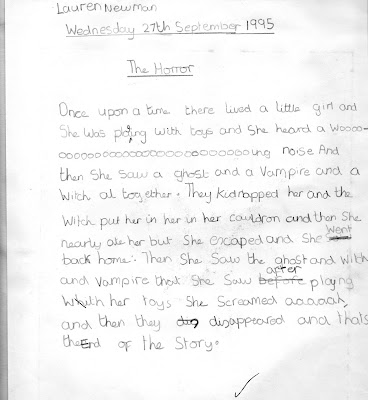 Lauren Newman
Wednesday 27th September 1995
The Horror
Once upon a time there lived a little girl and
She was plaing with toys and She heard a Woooo-
oooooooooooooooooooooooung noise And
then She Saw a ghost and a Vampire and a
Witch al together. They kidnapped her and the
Witch put her in her in her cauldron and then She
nearly ate her but She escaped and She went
back home. Then She Saw the ghost and Witch
and vampire that She Saw before after playing
With her toys. She Screamed aaaaah,
and then they disappeared and thats
the End of the Story.